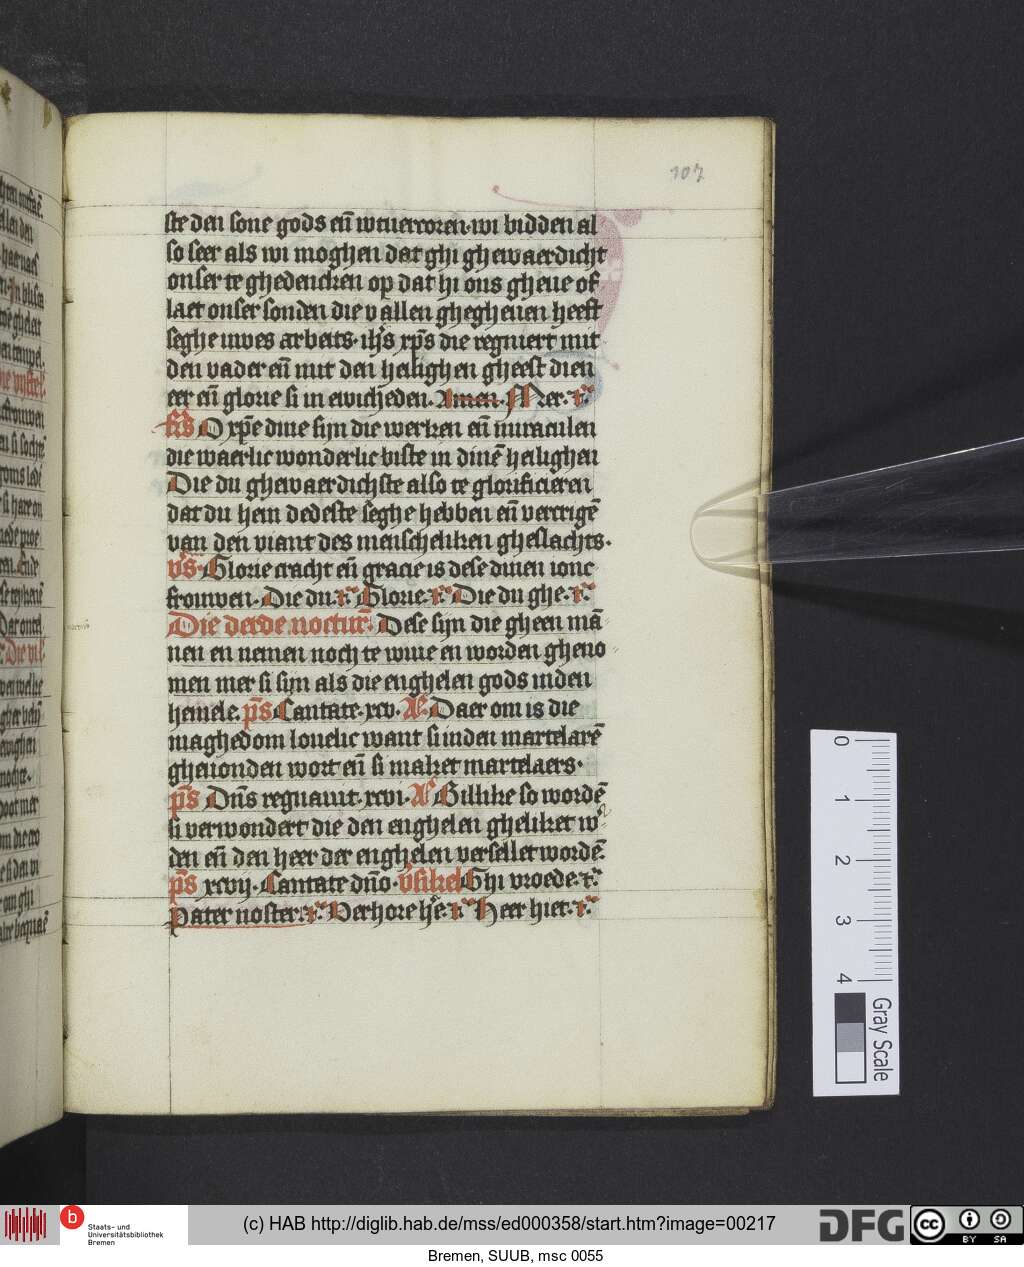 107
ste den sone gods eñ wtuercoren. wi bidden al
so seer als wi moghen dat ghi ghewaerdicht
onser te ghedencken op dat hi ons gheue of
laet onser sonden die v allen ghegheuen heeft
seghe uwes arbeits. ihs xp̄s die regniert mit
den vader eñ mit den heilighen gheest dien
eer eñ glorie si in ewicheden. Amen. Mer. r̄
O xp̄e dine sijn die werken eñ miraculen
die waerlic wonderlic biste in dinē heilighen
Die du ghewaerdichste also te glorificieren
dat du hem dedeste seghe hebben eñ vercrigē
van den viant des menscheliken gheslachts.
v̄s. Glorie cracht eñ gracie is dese dinen ionc
frouwen. Die du. r̄ Glorie. r̄ Die du ghe. r̄
Die derde noctur̄. Dese sijn die gheen mā
nen en nemen noch te wiue en worden gheno
men mer si sijn als die enghelen gods in den
hemele. p̄s Cantate. xcv. Añ Daer om is die
maghedom louelic want si in den martelarē
gheuonden wort eñ si maket martelaers.
p̄s Dn̄s regnauit. xcvi. Añ Gillike so wordē
si verwondert die den enghelen gheliket w
den eñ den heer der enghelen versellet wordē.
p̄s xcvij. Cantate dn̄o. v̄sikel Ghi vroede. r̄
Pater noster. r̄ Verhore h̄e. r̄ Heer hier. r̄
0
1
2
3
4
Gray Scale
b
Staats- und
Universitätsbibliothek
Bremen
(c) HAB http://diglib.hab.de/mss/ed000358/start.htm?image=00217
DFG
cc
BY SA
Bremen, SUUB, msc 0055